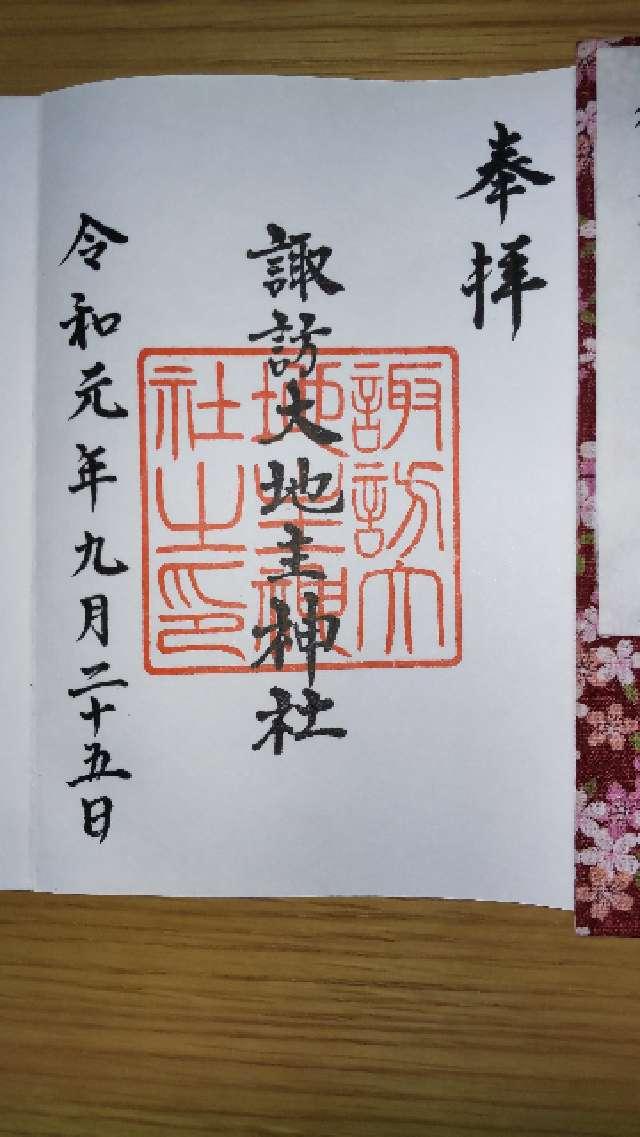 奉拝
諏訪大地主神社
諏訪大
地主神
社之印
令和元年九月二十五日